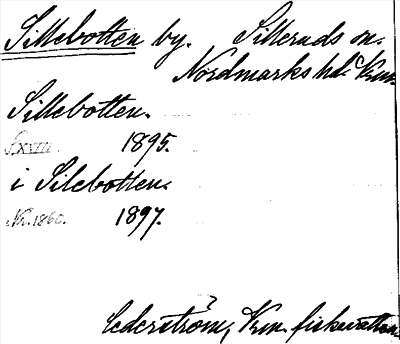 Sillebotten by. Silleruds sn.
Nordmarks hd. Krm.
Sillebotten.
S. XVIII. 1895.
i Silebotten.
Nr. 1860. 1897.
Cederström, Krm. fiskevatten